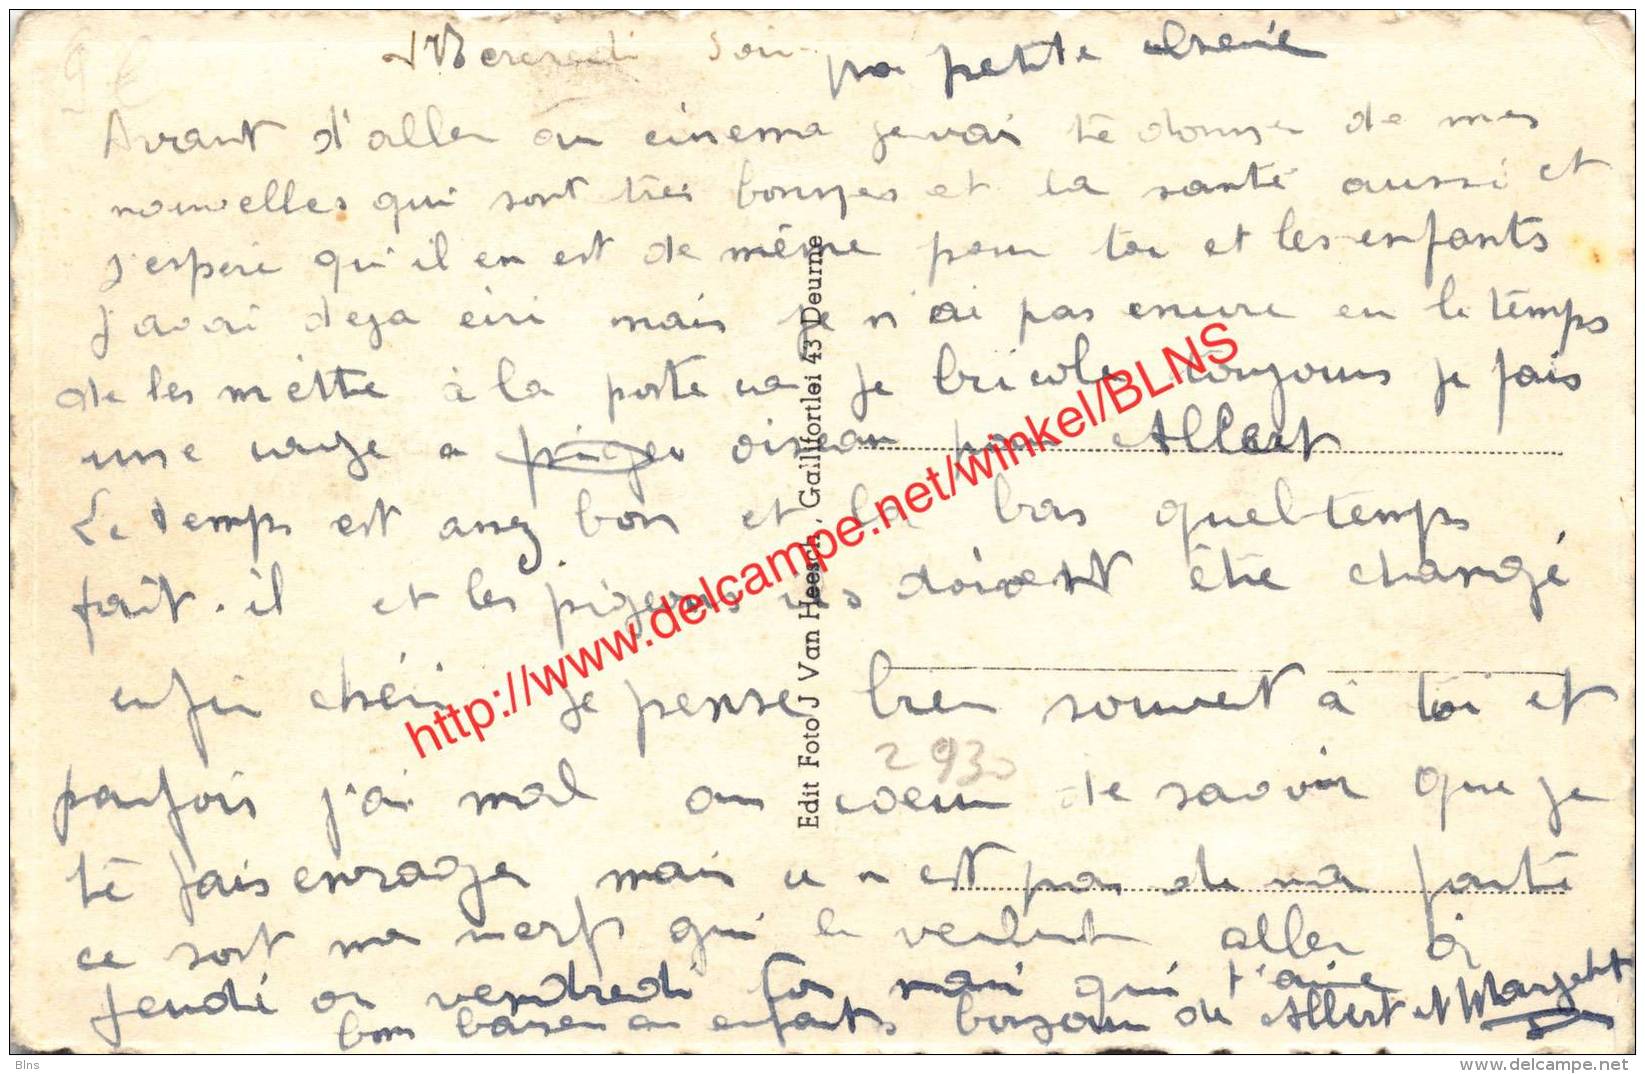 Mercredi Soir
Ma petite cherie
Avant d'aller au cinema je vai te donner de mes
nouvelles qui sont très bonnes et la santé aussi et
j'espere qu'il en est de même pour toi et les enfants
j'avai deja ecri mais je n'ai pas encore eu le temps
de les mettre à la poste car je bricole toujours je fais
une cage a oiseau pour Albert
Le temps est assez bon et la bas quel temps
fait-il et les pigeons ils doivent être changé
enfin chérie je pense bien souvent à toi et
parfois j'ai mal au coeur de savoir que je
te fais enrager mais ce n'est pas de ma faute
ce sont ma nerfs qui le veulent aller à
Jeudi ou vendredi Ton mari qui t'aime
bons baiser au enfants bonjour de Albert et Margerite
2930
9 €
Edit Foto J Van Heesch, Gallifortlei 43 Deurne
http://www.delcampe.net/winkel/BLNS
Blns
www.delcampe.net